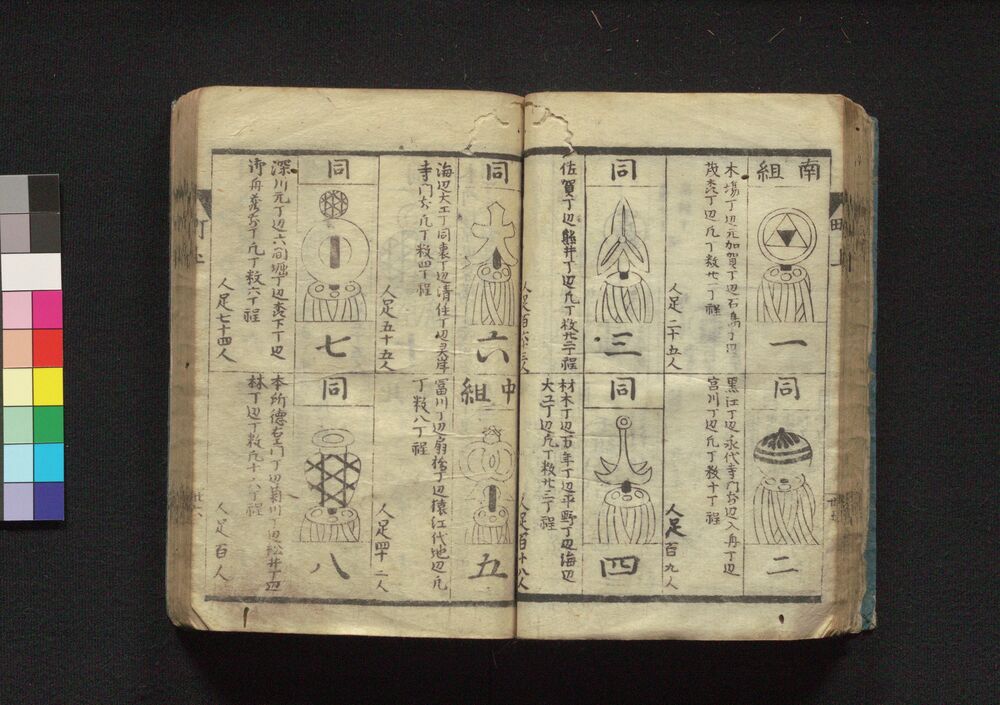 南組
一
木場丁辺元加賀丁辺石島丁辺
茂森丁辺凡丁数廿一丁程
人足二十五人
同
二
黒江丁辺永代寺門前辺入舟丁辺
宮川丁辺凡丁数十丁程
人足百九人
同
三
佐賀丁辺熊井丁辺凡丁数廿二丁程
同
四
材木丁辺万年丁辺平野丁辺海辺
大工丁辺凡丁数廿三丁程
人足百十八人
同
六
海辺大工丁同裏丁辺清住丁辺灵岸
寺門前凡丁数四丁程
人足五十五人
中組
五
富川丁辺扇橋丁辺猿江代地辺凡
丁数八丁程
人足四十二人
同
七
深川元丁辺六間堀丁辺森下丁辺
御舟蔵前丁凡丁数六丁程
人足七十四人
同
八
本所徳右エ門丁辺菊川丁辺松井丁辺
林丁辺丁数凡十八丁程
人足百人